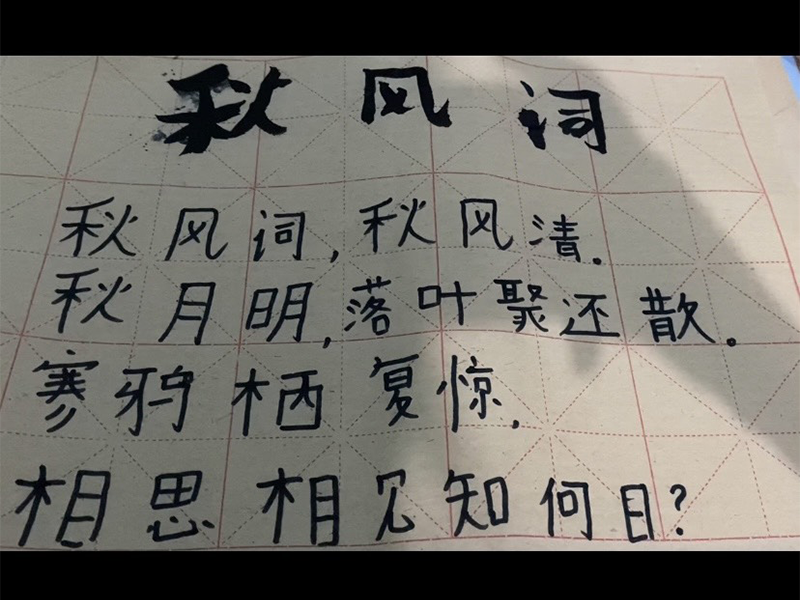 秋风词
秋风词,秋风清.
秋月明,落叶聚还散。
寒鸦栖复惊,
相思相见知何日?